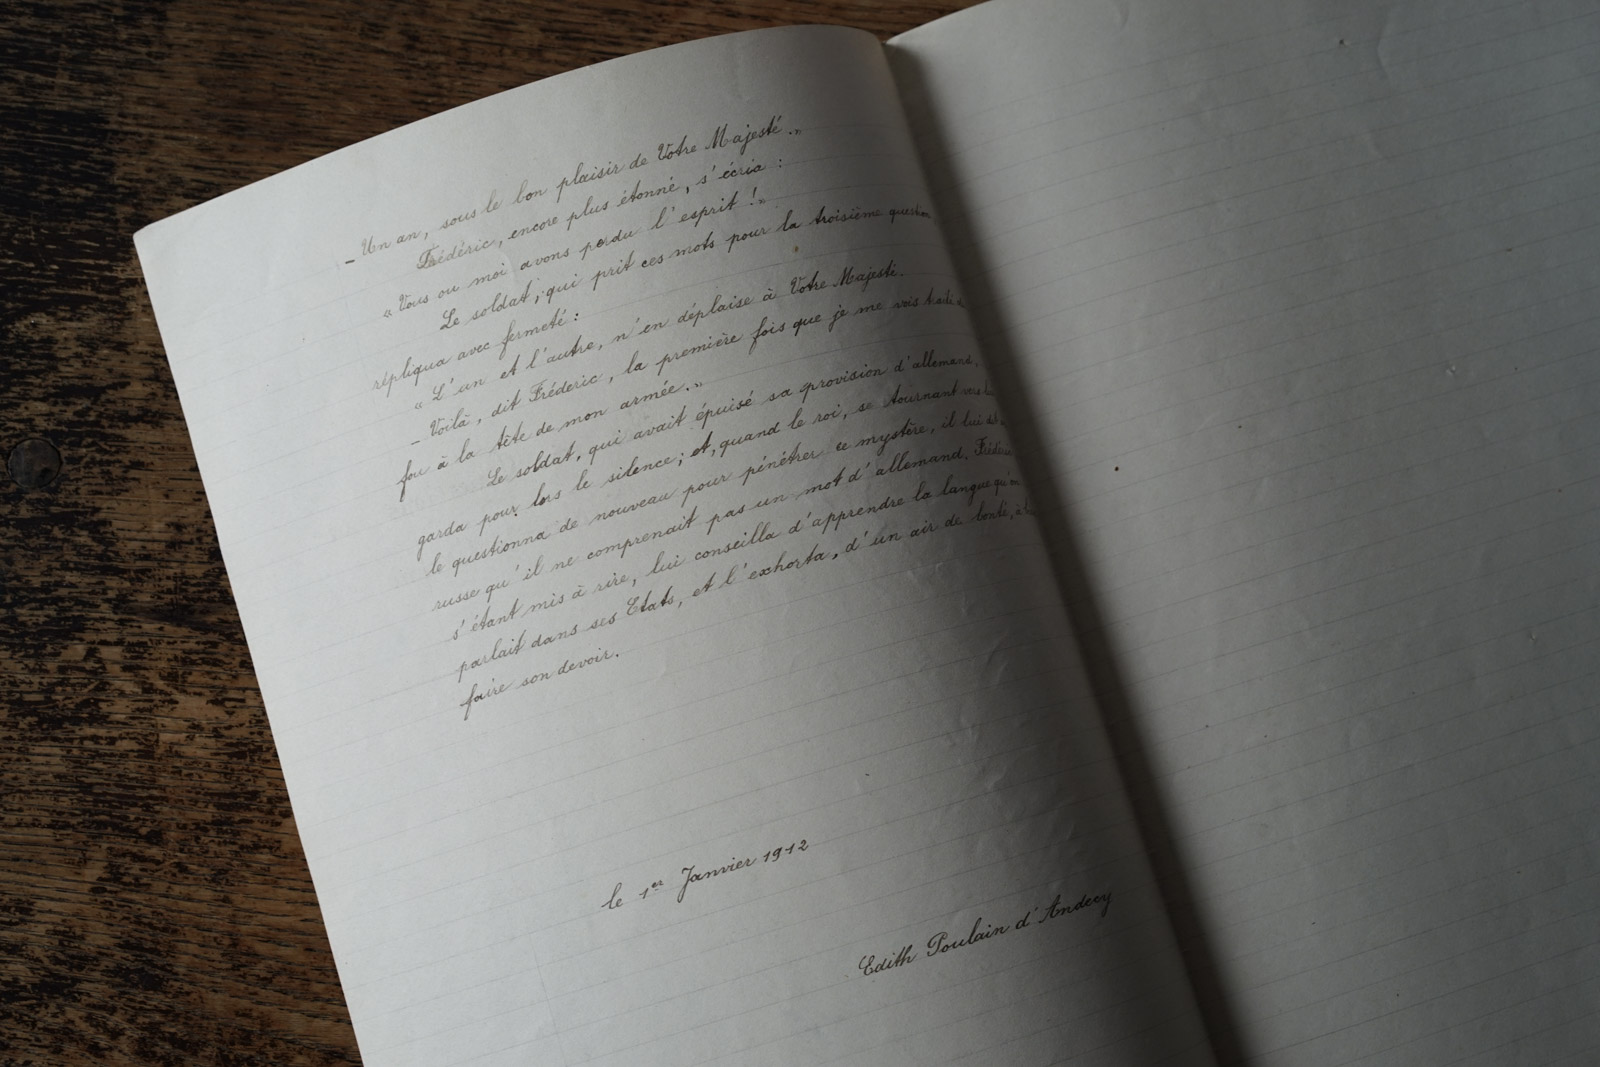 _ Un an, sous le bon plaisir de Votre Majesté."
Frédéric, encore plus étonné, s'écria :
« Vous ou moi avons perdu l'esprit !"
Le soldat, qui prit ces mots pour la troisième question
répliqua avec fermeté :
« L'un et l'autre, n'en déplaise à Votre Majesté.
_ Voilà, dit Fréderic, la première fois que je me vois traité de
fou à la tête de mon armée."
Le soldat, qui avait épuisé sa provision d'allemand,
garda pour lors le silence; et, quand le roi, se tournant vers
le questionna de nouveau pour pénétrer ce mystère, il lui dit
russe qu'il ne comprenait pas un mot d'allemand. Frédéric
s'étant mis à rire, lui conseilla d'apprendre la langue qu'on
parlait dans ses Etats, et l'exhorta, d'un air de bonté,
faire son devoir.
le 1er Janvier 1912
Edith Poulain d'Andecy